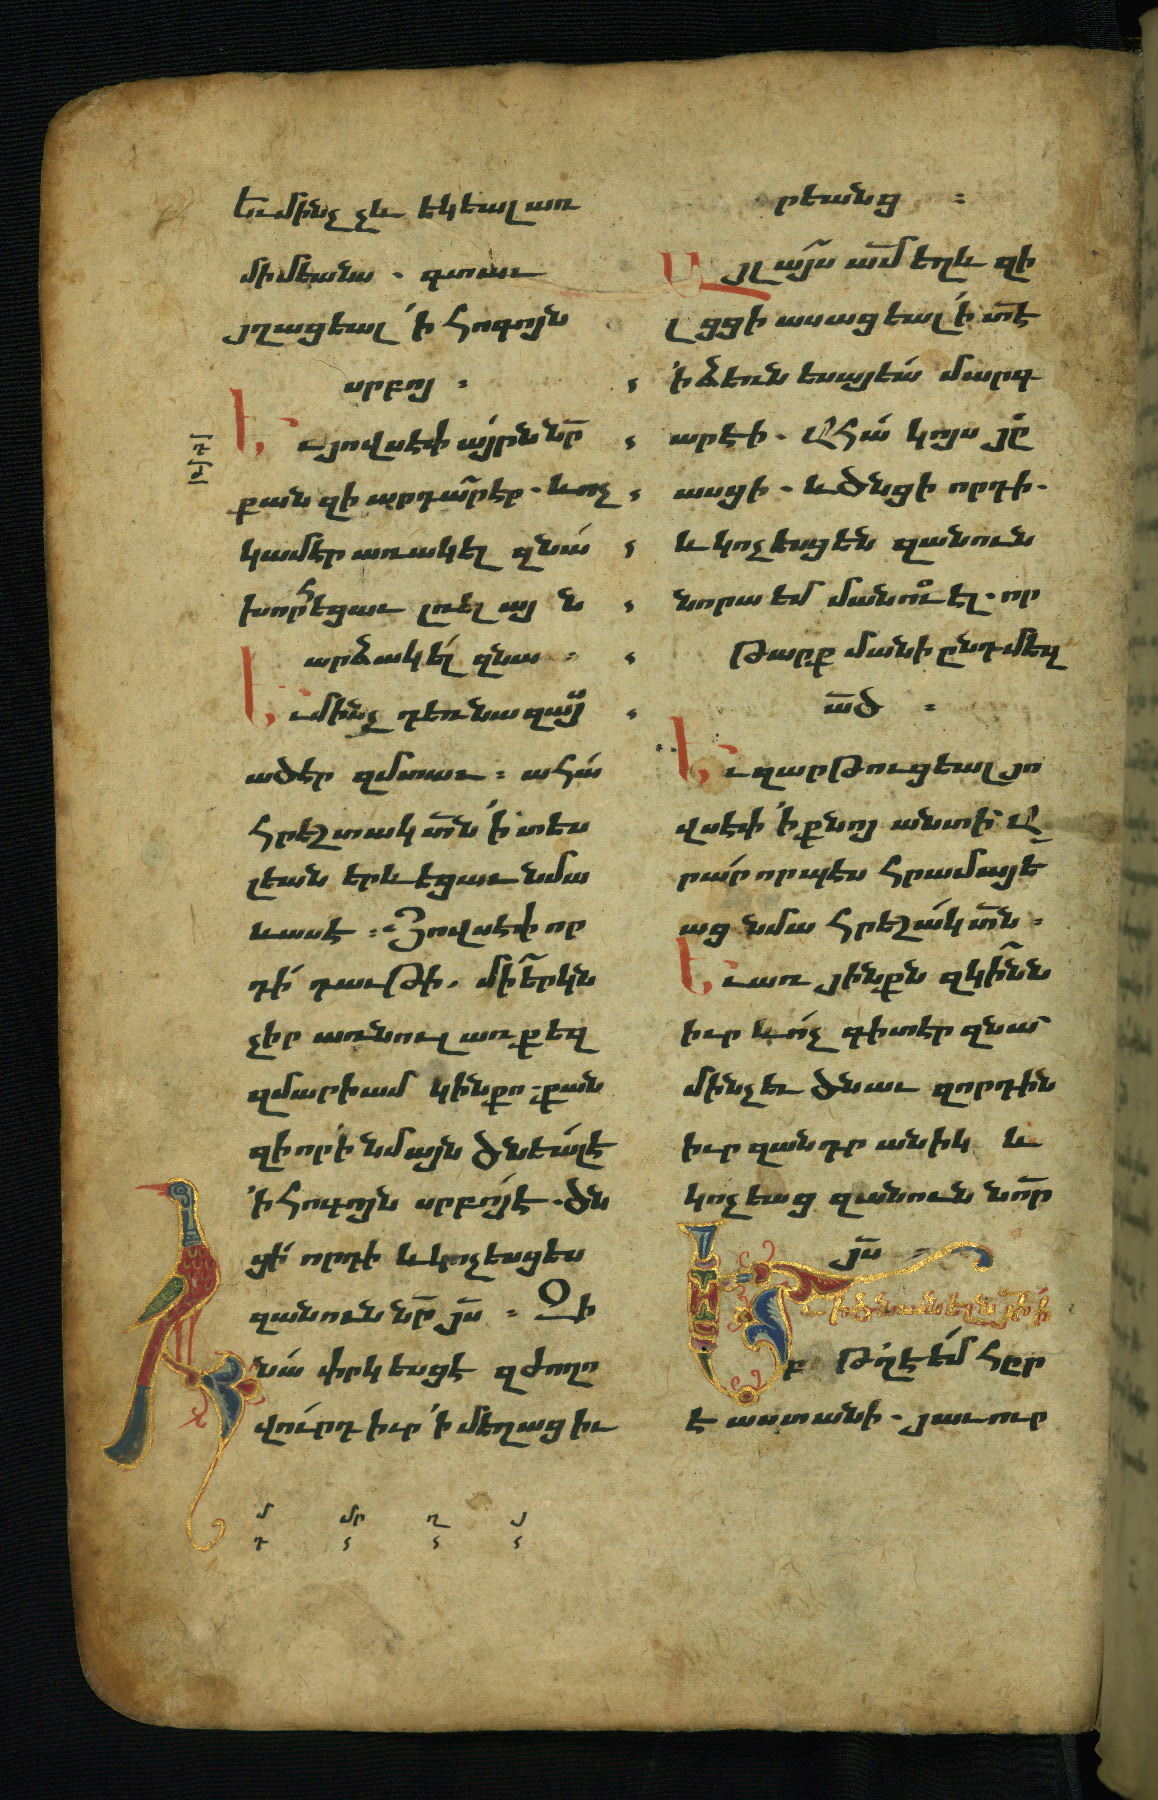 եւ մինչ չև եկեալ առ
միմեանս . գտաւ
յղացեալ ՛ի հոգւոյն
սրբոյ :
Եւ յովսէփ այրն նր̄
քան զի արդա̄րէր . և ոչ
կամէր առակել զնա՛
խորհեցաւ լռել այն
արձակել զնա :
Եւ մինչ դեռ նա զայ̄
ածէր զմտաւ : ահա՛
հրեշտակ տ̄ն ՛ի տես
լեան երևեցաւ նմա
և ասէ : Յովսէփ որ
դի՛ դաւթի . մի̄ երկն
չիր առնուլ առ քեզ
զմարիամ կին քո . քան
զի որ ՛ի նմայն ծնեալ է
՛ի հոգւոյն սրբոյ է . ծն
ցի՛ որդի և կոչեսցես
զանուն նր̄ յս̄ : Զի
նա՛ փրկեսցէ զժողո
վուրդ իւր ՛ի մեղաց իւ
րեանց :
Այլ այս̄ ամ̄ եղև զի
լցցի ասացեալ ՛ի տ̄է
՛ի ձեռն եսայեա՛ մարգ
արէի . Ահա՛ կոյս յղ̄
ասցի . և ծնցի որդի .
և կոչեսցեն զանուն
նորա եմմանուէլ . որ
թարգմանի ընդ մեզ
ա̄ծ :
Եւ զարթուցեալ յո
վսէփ ՛ի քնոյ անտի Ա
րար որպէս հրամայե
աց նմա հրեշտակ տ̄ն :
Եւ առ յինքն զկի̄նն
իւր և ոչ գիտէր զնա
մինչեւ ծնաւ զորդին
իւր զանդրանիկ և
կոչեաց զանուն նո̄ր
յս̄ :
Եւ ի ծնանելն յի՛ ՛ի
բեթղէէմ հր
էաստանի . յաւուր
մ մր ղ յ
դ